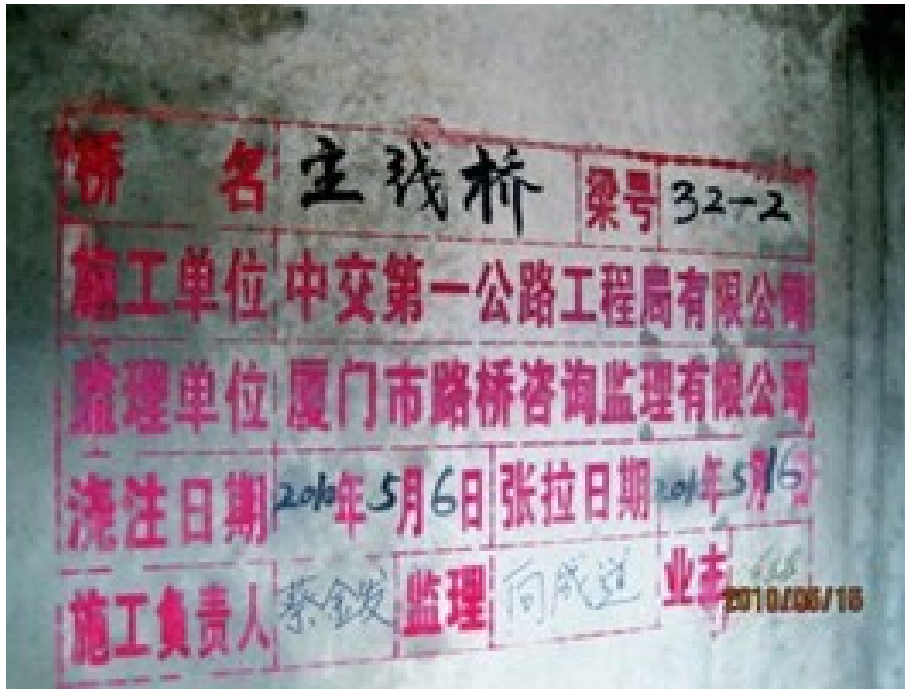 桥名 主线桥 梁号 32-2
施工单位 中交第一公路工程局有限公司
监理单位 厦门市路桥咨询监理有限公司
浇注日期 2010年5月6日 张拉日期 2010年5月16
施工负责人 蔡金发 监理 向成 业主
2010/06/16